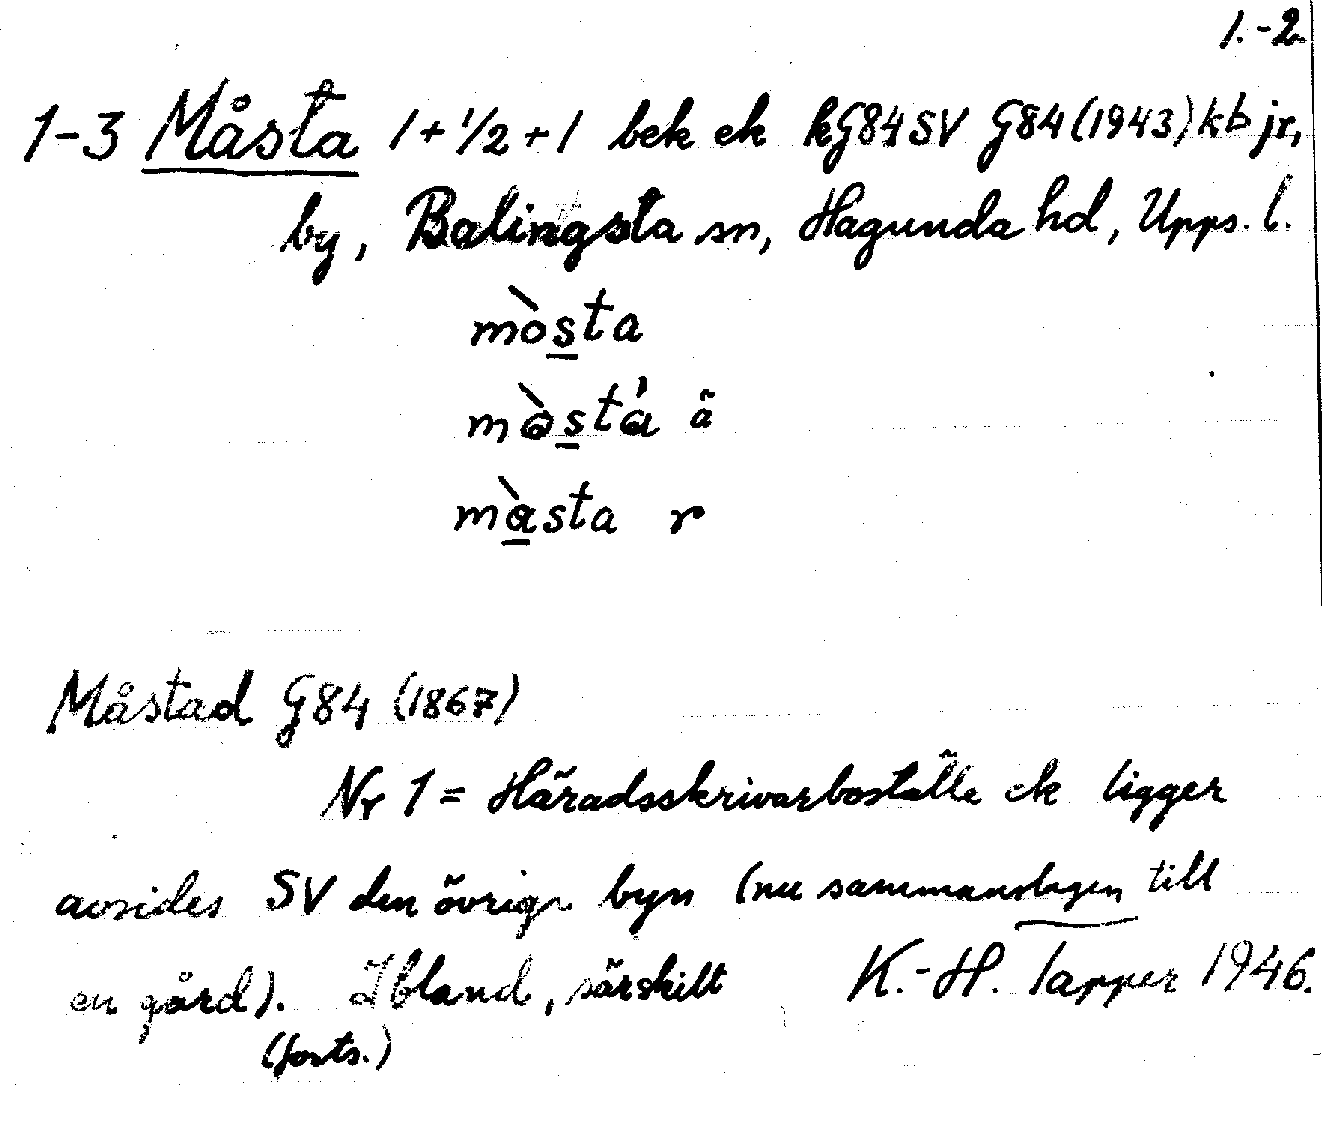 1.-2
1-3 Måsta 1+1/2+1 bek ek kG84SV G84(1943)kb jr,
by, Balingsta sn, Hagunda hd, Upps. l.
mòsta
ä
màsta r
Måstad G84 (1867)
Nr 1 = Häradsskrivarboställe ek ligger
avsides SV den övriga byn (nu sammanslagen till
en gård). Ibland, särskilt K.-H. Tapper 1946.
(forts.)